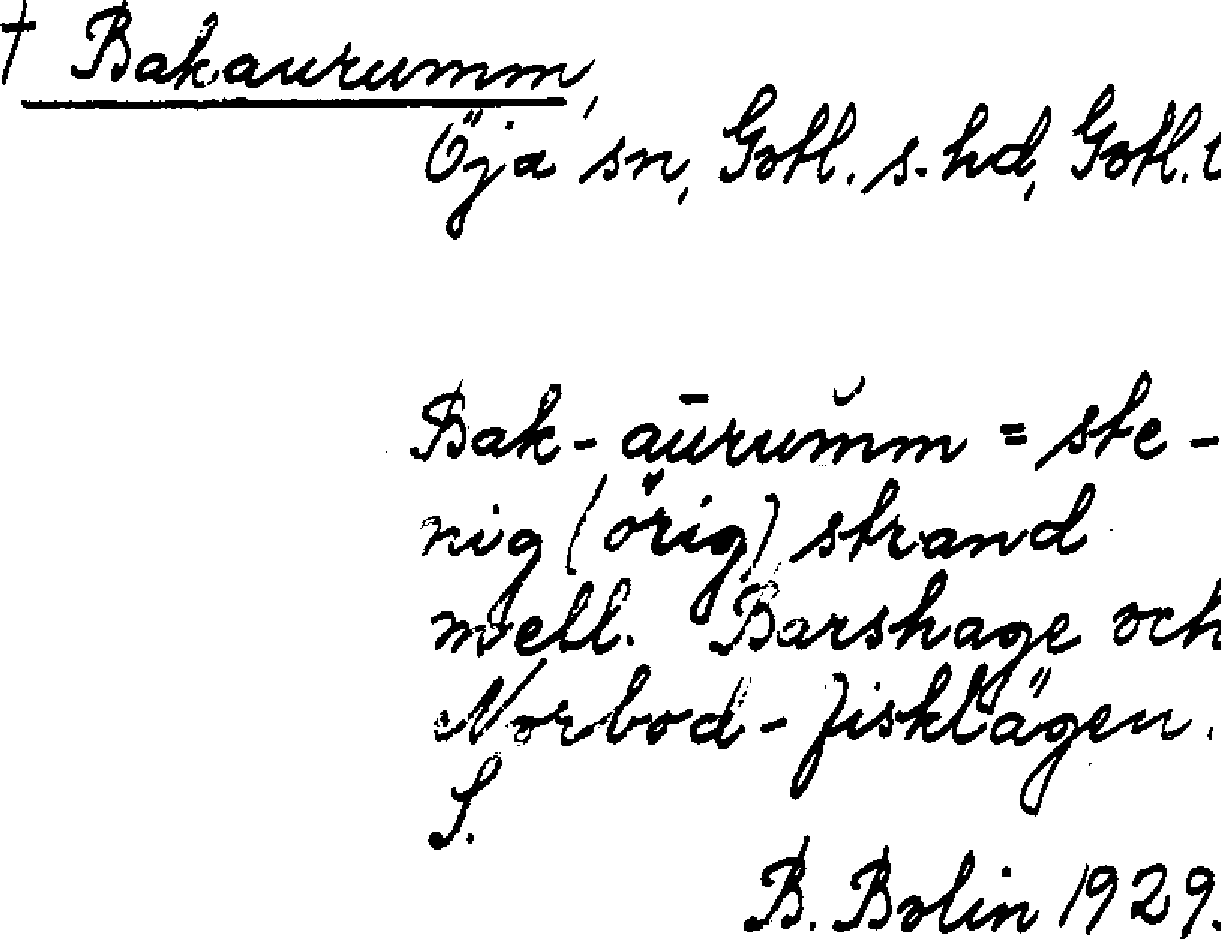 † Bakaurumm,
Öja sn, Gotl. s. hd, Gotl. l
Bak-aūrum̆m = ste-
nig (örig) strand
mell. Barshage och
Norbod-fisklägen.
S.
B. Bolin 1929.